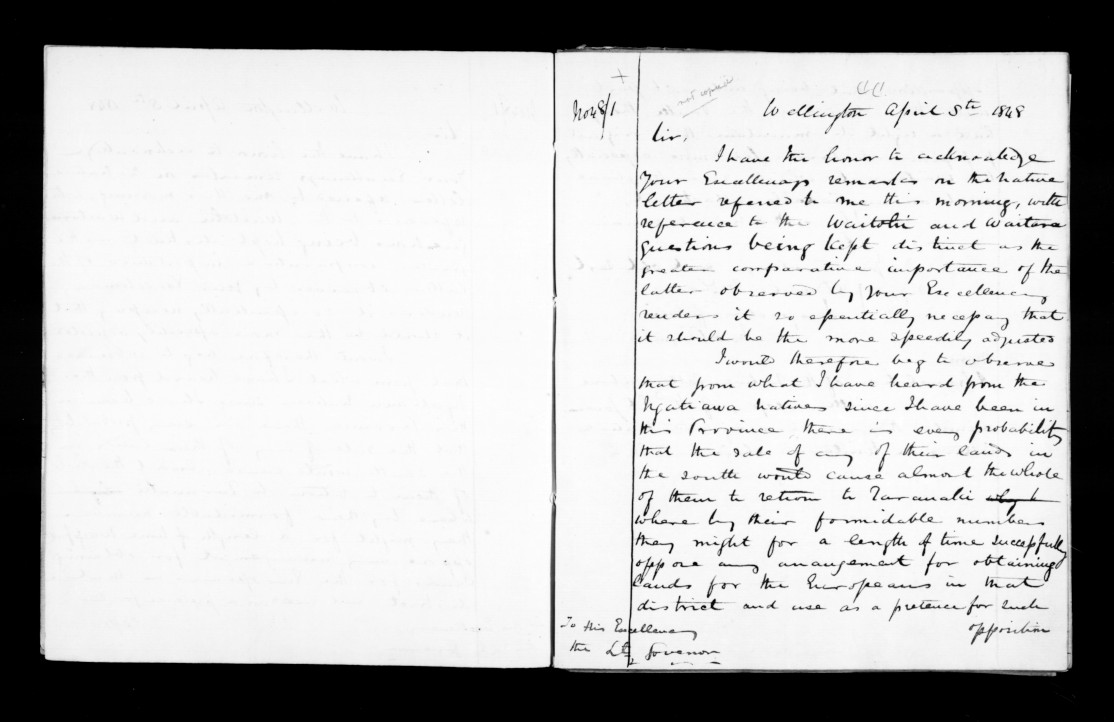 No 48/1
not copied
Wellington April 5th 1848
Sir,
I have the honor to acknowledge
Your Excellencys remarks on the native
letter referred to me this morning, with
reference to the Waitohi and Waitara
questions being kept distinct as the
greater comparative importance of the
latter observed by Your Excellency
renders it so essentially necessary that
it should be the more speedily adjusted
I would therefore beg to observe
that from what I have heard from the
Ngatiawa natives since I have been in
this Province there is every probability
that the sale of any of their lands in
the south would cause almost the whole
of them to return to Taranaki
where by their formidable numbers
they might for a length of time successfully
oppose any arrangement for obtaining
lands for the Europeans in that
district and use as a pretence for such
opposition
To His Excellency
the Lt Govenor